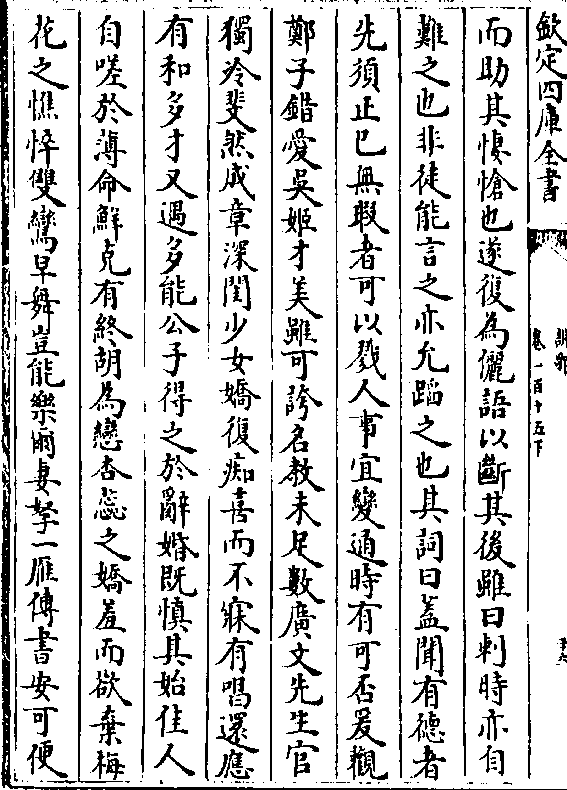 欽定四庫全書
說郛
卷一百十五下
而助其悽愴也遂復為儷語以斷其後雖曰判時亦自
難之也非徒能言之亦允蹈之也其詞曰蓋聞有德者
先須正已無瑕者可以戮人事宜變通時有可否爰觀
鄭子錯愛吳姬才美雖可誇名教未足數廣文先生官
獨冷斐然成章深閨少女嬌復痴喜而不寐有唱還應
有和多才又遇多能公子得之於辭婚既慎其始佳人
自嗟於薄命鮮克有終胡為戀杏蕊之嬌羞而欲棄梅
花之憔悴雙鸞早舞豈能樂爾妻孥一雁傳書安可便